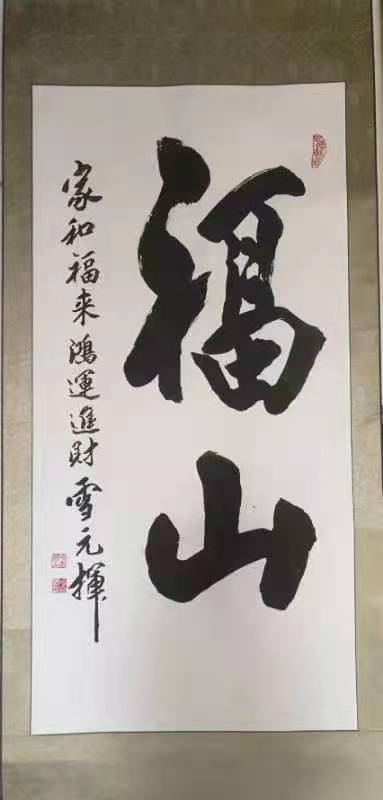 福山
家和福来鴻運進財雪元揮